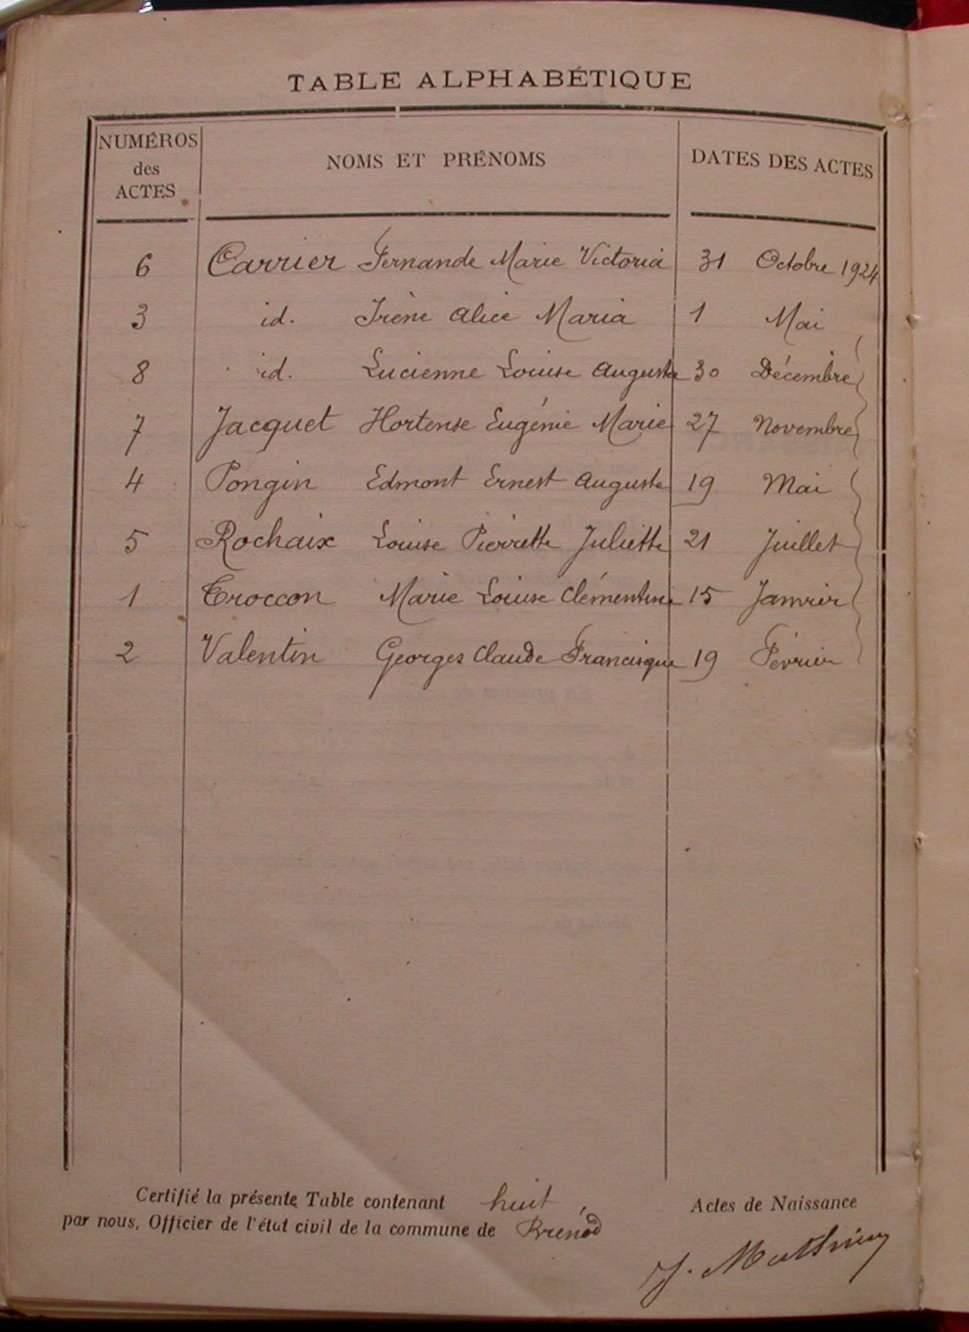 TABLE ALPHABÉTIQUE
NUMÉROS des ACTES NOMS ET PRÉNOMS DATES DES ACTES
6 Carrier Fernande Marie Victoria 31 Octobre 1924
3 id. Irène Alice Maria 1 Mai
8 id. Lucienne Louise Augusta 30 Décembre
7 Jacquet Hortense Eugénie Marie 27 Novembre
4 Pongin Edmont Ernest Auguste 19 Mai
5 Rochaix Louise Pierrette Juliette 21 Juillet
1 Troccon Marie Louise Clémentine 15 Janvier
2 Valentin Georges Claude Francisque 19 Février
Certifié la présente Table contenant huit Actes de Naissance
par nous, Officier de l'état civil de la commune de Brénod
J.